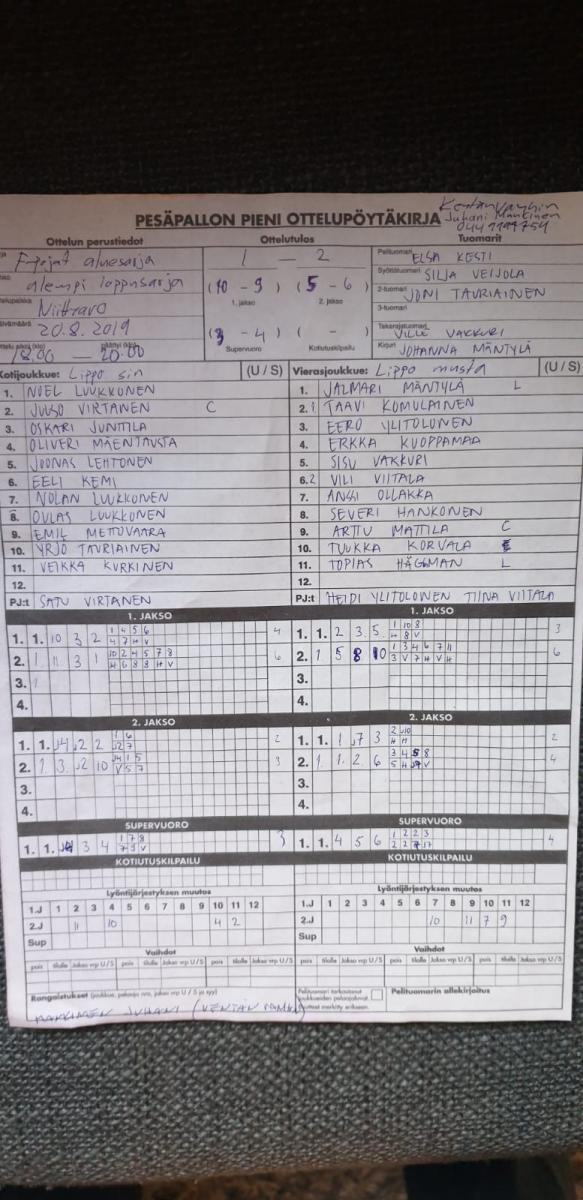 Kentänvanhin
PESÄPALLON PIENI OTTELUPÖYTÄKIRJA Juhani Mankinen
Ottelun perustiedot Ottelutulos Tuomarit
F-pojat aluesarja 1 — 2 Pelituomari ELSA KESTI
alempi loppusarja (10 - 9) (5 - 6) Syöttötuomari SILJA VEIJOLA
1. jakso 2. jakso 2-tuomari JONI TAURIAINEN
Niittyaro 3-tuomari
20.8.2019 (3 - 4) ( - ) Takarajatuomari VILLE VAKKURI
18.00 — 20.00 Supervuoro Kotiutuskilpailu Kirjuri JOHANNA MÄNTYLÄ
Kotijoukkue: Lippo sin (U / S) Vierasjoukkue: Lippo musta (U / S)
1. NOEL LUUKKONEN 1. JALMARI MÄNTYLÄ L
2. JUUSO VIRTANEN C 2. 1 TAAVI KOMULAINEN
3. OSKARI JUNTTILA 3. EERO YLITOLONEN
4. OLIVERI MÄENTAUSTA 4. ERKKA KUOPPAMAA
5. JOONAS LEHTONEN 5. SISU VAKKURI
6. EELI KEMI 6. 2 VILI VIITALA
7. NOLAN LUUKKONEN 7. ANSSI OLLAKKA
8. OULAS LUUKKONEN 8. SEVERI HANKONEN
9. EMIL METTOVAARA 9. ARTTU MATTILA C
10. YRJÖ TAURIAINEN 10. TUUKKA KORVALA
11. VEIKKA KURKINEN 11. TOPIAS HÄGGMAN L
12. 12.
PJ:t SATU VIRTANEN PJ:t HEIDI YLITOLONEN TIINA VIITALA
1. JAKSO 1. JAKSO
1 4 5 6 1 10 8
1. 1. 10 3 2 4 7 H V 4 1. 1. 2 3 5 H 8 V 3
10 2 4 5 7 8 1 3 4 6 7 11
2. 1 11 3 1 H 6 8 8 H V 6 2. 1 5 8 10 3 V 7 H V H 6
3. 1 3.
4. 4.
2. JAKSO 2. JAKSO
1. 1. J4 J2 2 2 1. 1. 1 J7 3 2
2. 1. 3. J2 10 3 2. 1. 1. 2 6 4
3. 3.
4. 4.
SUPERVUORO SUPERVUORO
1 7 8 1 2 2 3
1. 1. 3 4 3 1. 1. 4 5 6 4
KOTIUTUSKILPAILU KOTIUTUSKILPAILU
Lyöntijärjestyksen muutos Lyöntijärjestyksen muutos
1.J 1 2 3 4 5 6 7 8 9 10 11 12 1.J 1 2 3 4 5 6 7 8 9 10 11 12
2.J 11 10 4 2 2.J 10 11 7 9
Sup Sup
Vaihdot Vaihdot
pois tilalle Jakso vrp U/S pois tilalle Jakso vrp U/S pois tilalle Jakso vrp U/S pois tilalle Jakso vrp U/S pois tilalle Jakso vrp U/S pois tilalle Jakso vrp U/S
Rangaistukset (joukkue, pelaaja nro, jakso vrp U / S ja syy) Pelituomarin allekirjoitus